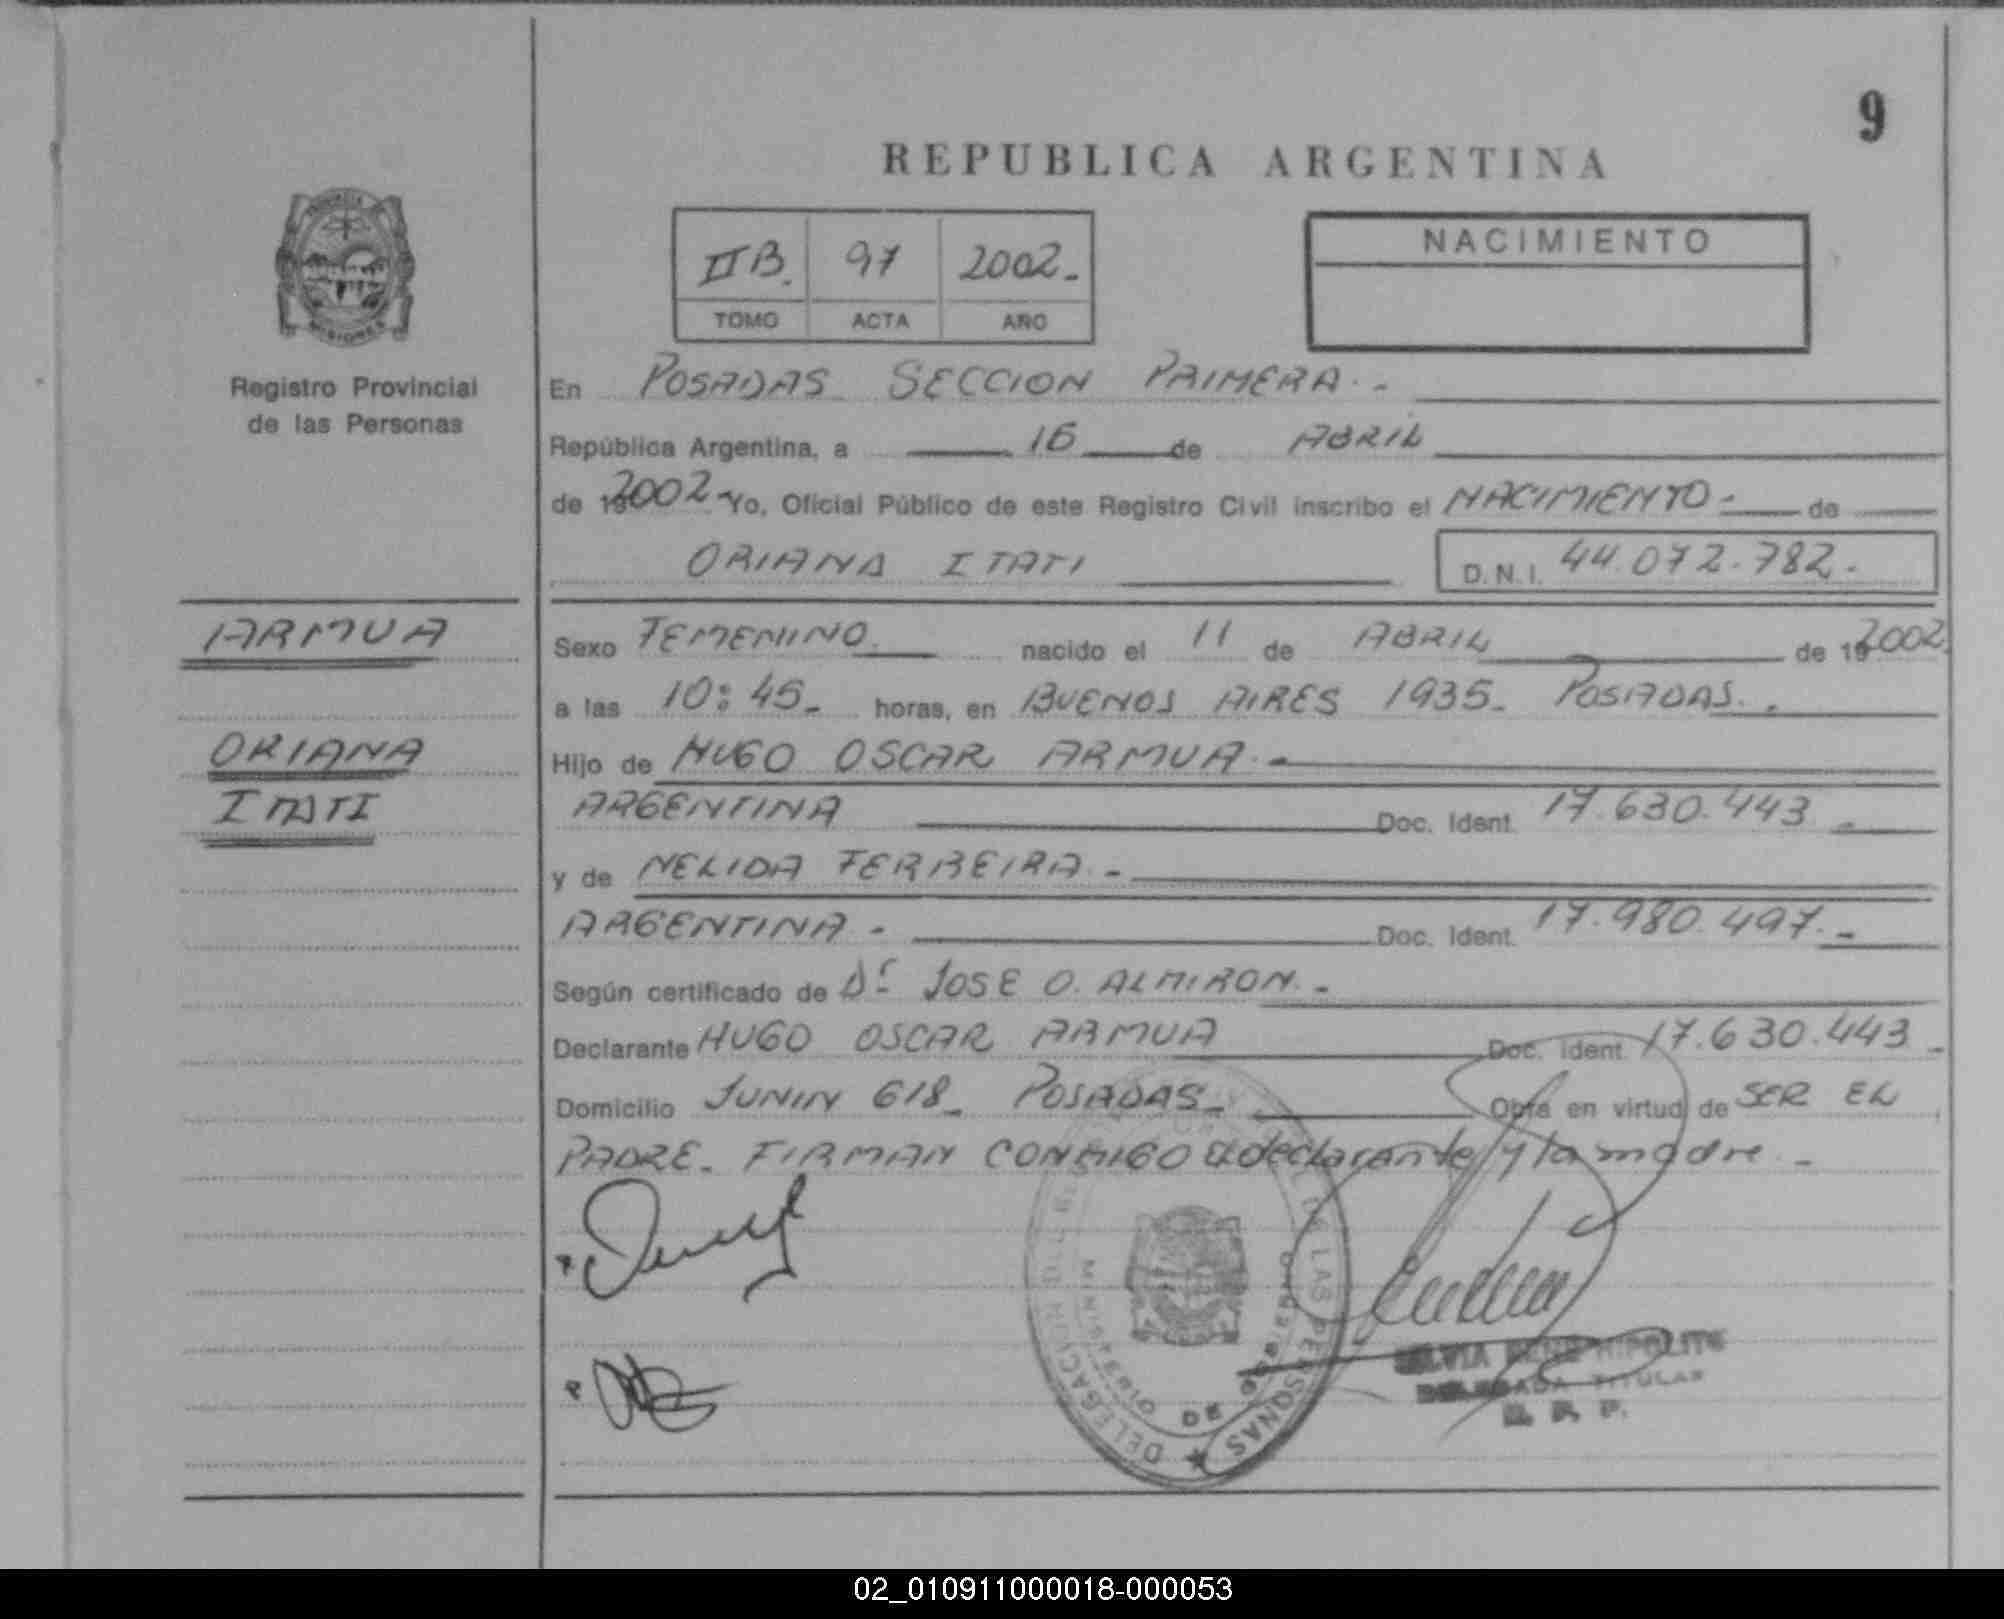 9
REPUBLICA ARGENTINA
II B. 97 2002.-
TOMO ACTA AÑO
NACIMIENTO
MISIONES
Registro Provincial
de las Personas
En POSADAS SECCION PRIMERA.-
República Argentina, a 16 de ABRIL
de 19 2002.- Yo, Oficial Público de este Registro Civil inscribo el NACIMIENTO.- de
ORIANA ITATI D.N.I. 44.072.782.-
ARMUA
ORIANA
ITATI
Sexo FEMENINO. nacido el 11 de ABRIL de 19 2002.
a las 10:45.- horas, en BUENOS AIRES 1935.- POSADAS..
Hijo de HUGO OSCAR ARMUA.-
ARGENTINA Doc. Ident. 17.630.443.-
y de NELIDA FERREIRA.-
ARGENTINA.- Doc. Ident. 17.980.497.-
Según certificado de Dr JOSE O. ALMIRON.-
Declarante HUGO OSCAR ARMUA Doc. Ident. 17.630.443.-
Domicilio JUNIN 618.- POSADAS.- Obra en virtud de SER EL
PADRE.- FIRMAN CONMIGO el declarante y la madre.-
DELEGACION DE LAS PERSONAS
MINISTERIO DE GOBIERNO
SILVIA RENE HIPOLITO
DELEGADA TITULAR
R. P. P.
02_010911000018-000053